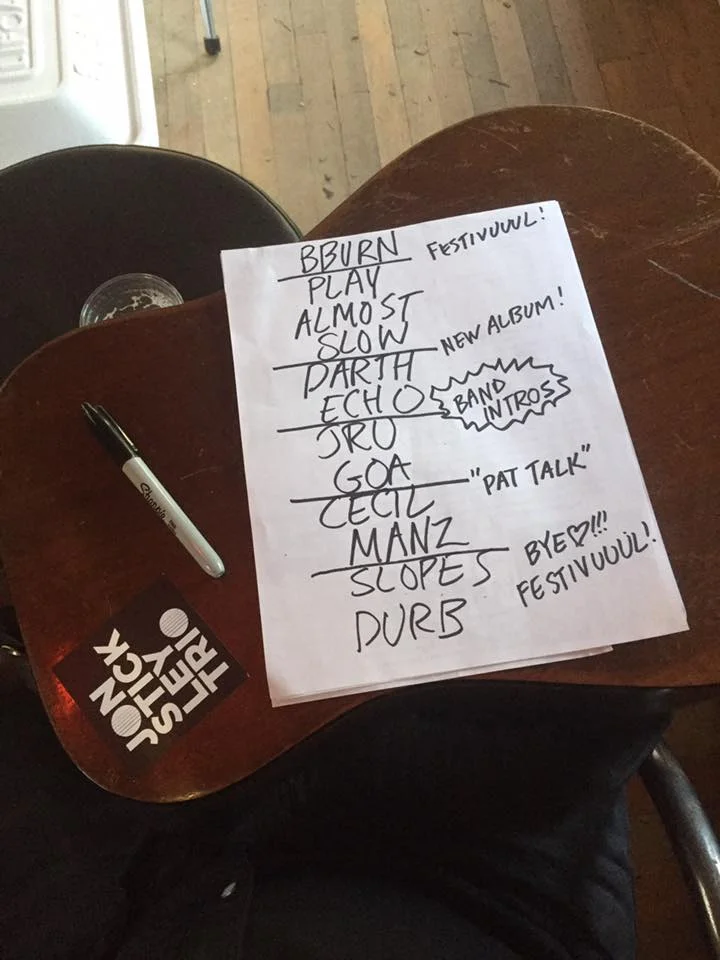 BBURN
FESTIVUUUL!
PLAY
ALMOST
SLOW
NEW ALBUM!
DARTH
ECHO
BAND
INTROS
JRU
GOA
"PAT TALK"
CECIL
MANZ
BYE♡!!!
FESTIVUUUL!
SLOPES
DURB
Sharpie
JON
STICK
LEY
TRIO